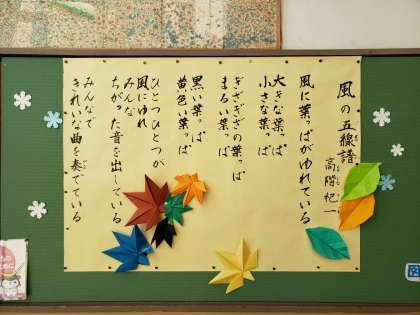 風の五線譜
高階杞一
風に葉っぱがゆれている
大きな葉っぱ
小さな葉っぱ
ぎざぎざの葉っぱ
まるい葉っぱ
黒い葉っぱ
黄色い葉っぱ
ひとつひとつが
風にゆれ
みんな
ちがった音を出している
みんなで
きれいな曲を奏でている